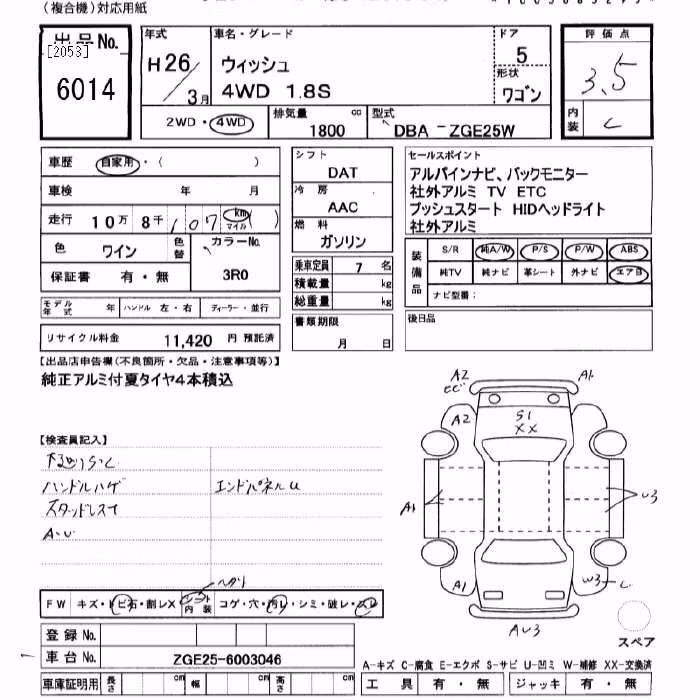 (複合機)対応用紙
出品No. 年式 車名・グレード ドア 評価点
[2053] 5
6014 H26/3月 ウィッシュ 形状 3.5
4WD 1.8S ワゴン
2WD・4WD 排気量 1800 cc 型式 DBA-ZGE25W 内装 C
車歴 自家用・( )
車検 年 月
走行 10万 8千 107 km マイル ( )
色 ワイン 色替 カラーNo. 3R0
保証書 有・無
モデル年式 年 ハンドル 左・右 ディーラー・並行
リサイクル料金 11,420 円 預託済
シフト DAT
冷房 AAC
燃料 ガソリン
乗車定員 7 名
積載量 kg
総重量 kg
書類期限
月 日
セールスポイント
アルパインナビ、バックモニター
社外アルミ TV ETC
プッシュスタート HIDヘッドライト
社外アルミ
装備品 S/R 純A/W P/S P/W ABS
純TV 純ナビ 革シート 外ナビ エアB
ナビ型番:
後日品
【出品店申告欄(不良箇所・欠品・注意事項等)】
純正アルミ付夏タイヤ4本積込
【検査員記入】
ハンドルハゲ エンドパネルU
スタッドレス
A・U
A2 A1
A2 S1
XX
A1 U3
A1 W3
AU3
スペア
ヘタリ
FW キズ・トビ石・割レX シート内装 コゲ・穴・汚レ・シミ・破レ・スレ
登録No.
車台No. ZGE25-6003046
車庫証明用 長さ cm 幅 cm 高さ cm
A-キズ C-腐食 E-エクボ S-サビ U-凹ミ W-補修 XX-交換済
工具 有・無 ジャッキ 有・無